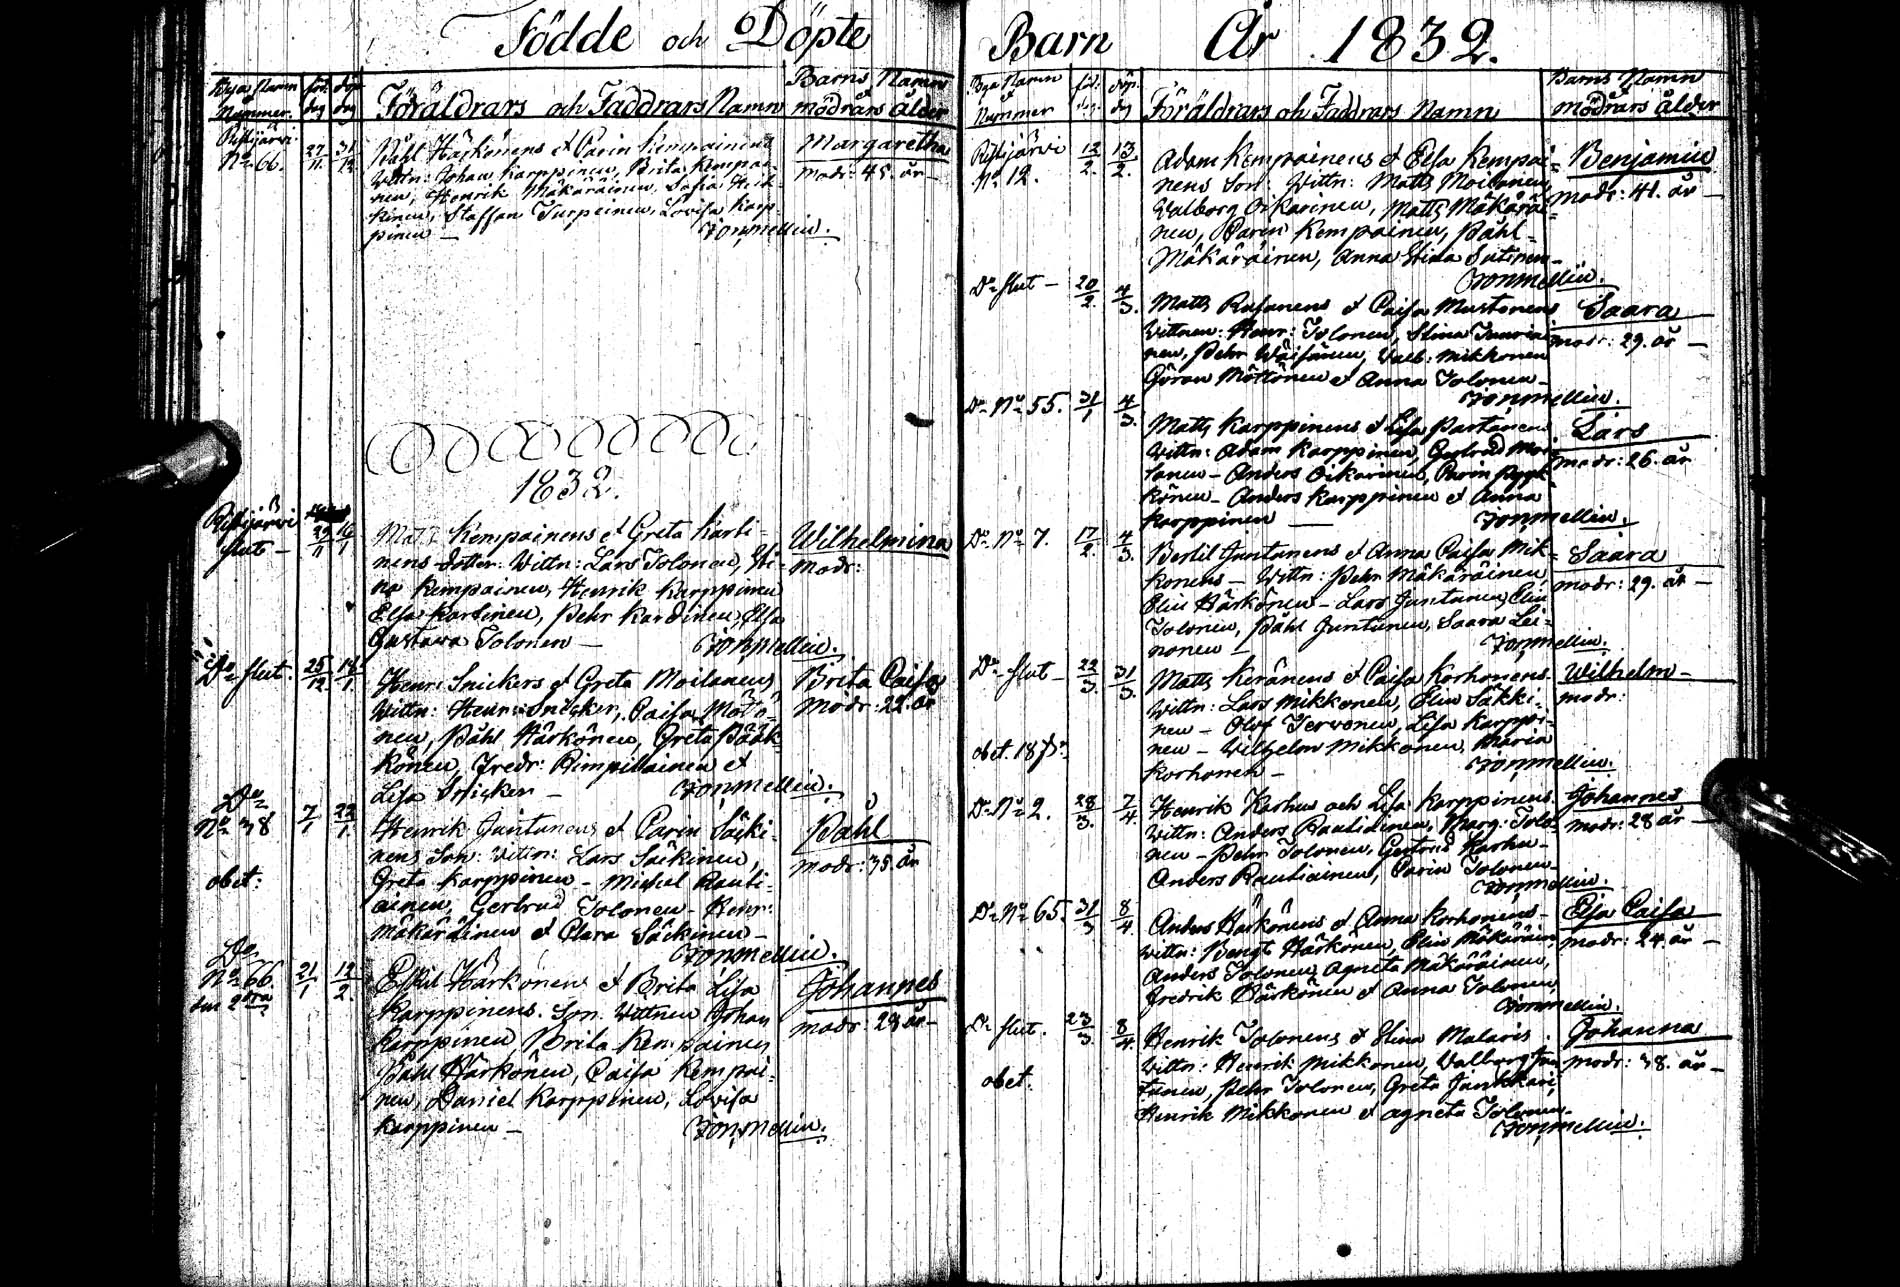 Födde och Döpte
Barn År 1832.
Bya Namn föd: döp:
& Nummer. dag dag
Föräldrars och Faddrars Namn
Barns Namn
& mödrars ålder
Ristijärvi
No 66. 27/11 31/12
Påhl Härkönens & Carin Kempainens
Wittn: Johan Karppinen, Brita Kempai-
nen, Henrik Mäkäräinen, Sofia Heik-
kinen, Staffan Turpeinen, Lovisa Karp-
pinen —
Margaretha
modr: 45. år —
1832.
Ristijärvi
slut — 29/11 16/1
Matts Kempainens & Greta Karti-
nens dotter. Wittn: Lars Tolonen, Sti-
na Kempainen, Henrik Karppinen
Elsa Kartinen, Pehr Kardinen, Elsa
Gustava Tolonen —
Wilhelmina
modr:
Do slut. 25/12 18/1
Henr: Snickers & Greta Moilanens
Wittn: Henr: Snicker, Caisa
nen, Påhl Härkönen, Greta Pääk-
könen, Fredr: Rimpiläinen &
Lisa Snicker —
Brita Caisa
modr: 22. år
Do
No 38 7/1 22/1
obet:
Henrik Juntunens & Carin Säcki-
nens Son: Wittn: Lars Säckinen,
Greta Karppinen — Michel Rauti-
ainen, Gertrud Tolonen — Henr:
Mäkäräinen & Clara Säckinen —
Påhl
modr: 35 år
Do
No 66. 21/1 12/2
Eskil Härkönens & Brita Lisa
Karppinens. Son. Wittnen Johan
Karppinen, Brita Kempainen
Påhl Härkönen, Caisa Kempai-
nen, Daniel Karppinen, Lovisa
Karppinen —
Johannes
modr: 28 år —
Bya Namn föd: döp.
& Nummer dag
Föräldrars och Faddrars Namn
Barns Namn
& mödrars ålder
Ristijärvi 12/2. 13/2.
No 12.
Adam Kempainens & Elsa Kempai-
nens Son: Wittn: Matts Moilanen,
Valborg Oikarinen, Matts Mäkäräi-
nen, Carin Kempainen, Påhl
Mäkäräinen, Anna Stina
Benjamin
modr: 41. år —
Do slut — 20/2 4/3.
Matts Rusanens & Caisa Mustonens
Wittnen: Henr: Tolonen, Stina
nen, Pehr Wäisänen, Valb: Mikkonen
Göran Möttönen & Anna Tolonen —
Saara
modr: 29. år —
Do No 55. 31/1 4/3.
Matts Karppinens & Lisa Partanens
Wittn: Adam Karppinen, Gertrud Moi-
lanen — Anders Oikarinen, Carin
könen — Anders Karppinen & Anna
Karppinen —
Lars
modr: 26. år
Do No 7. 17/2. 4/3.
Bertil Juntunens & Anna Caisa Mik-
konens — Wittn: Pehr Mäkäräinen,
Elin Härkönen — Lars Juntunen, Elin
Tolonen, Påhl Juntunen, Saara Lei-
nonen —
Saara
modr: 29. år —
Do slut — 22/3. 31/3.
Matts Keränens & Caisa Korhonens
Wittn: Lars Mikkonen, Elin Säkki-
nen — Olof Tervonen, Lisa Karppi-
nen — Wilhelm Mikkonen, Maria
Korhonen —
Wilhelm —
modr:
Do No 2. 28/3. 7/4.
Henrik Karhus och Lisa Karppinens
Wittn: Anders Rautiainen, Marg: Tolo-
nen — Pehr Tolonen, Gertrud Karhu —
Anders Rautiainen, Carin Tolonen —
Johannes
modr: 28 år —
Do No 65. 31/3 8/4
Anders Härkönens & Anna Korhonens —
Wittn: Bengt Härkönen, Elin Mäkäräin:
Anders Tolonen, Agneta Mäkäräinen,
Fredrik Härkönen & Anna Tolonen
Elsa Caisa
modr: 24. år —
Do slut. 23/3. 8/4.
obet.
Henrik Tolonens & Stina Malaris
Wittn: Henrik Mikkonen, Valborg Jun-
tunen, Pehr Tolonen, Greta
Henrik Mikkonen & Agneta Tolonen —
Johanna
modr: 38. år —